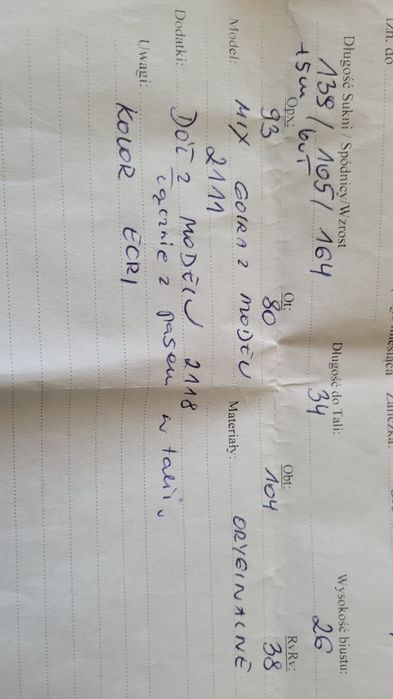 miesiąca Zaliczka:
Długość Sukni / Spódnicy/Wzrost Długość do Tali: Wysokość biustu:
139 / 105 / 164 34 26
+5cm but
Opx: Ot: Obt: RvRv:
93 80 104 38
Model: MIX GÓRA Z MODELU Materiały: ORYGINALNE
2111
Dodatki: DÓŁ Z MODELU 2118
łącznie z pasem w talii
Uwagi: KOLOR ECRI